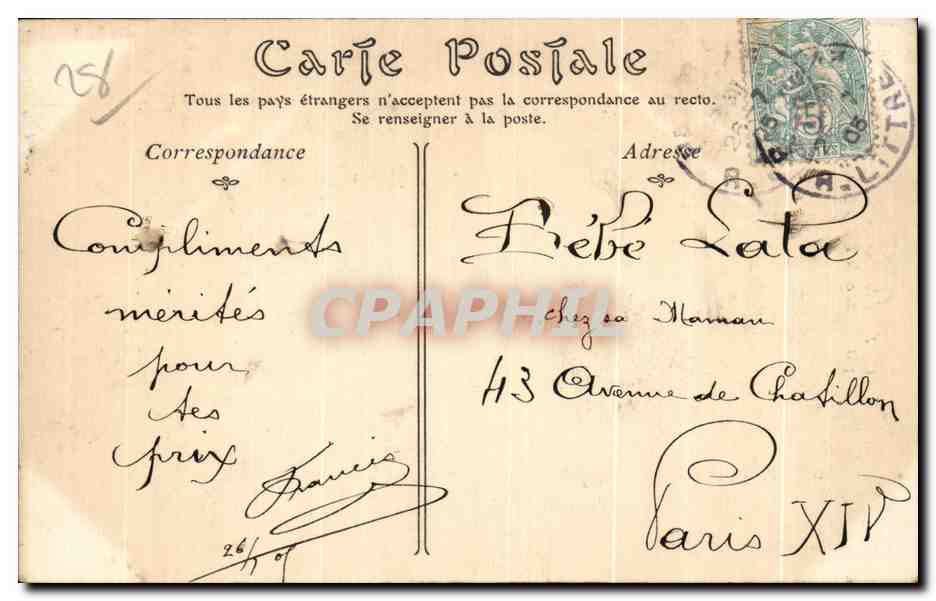 28
Carte Postale
Tous les pays étrangers n'acceptent pas la correspondance au recto.
Se renseigner à la poste.
Correspondance
Compliments
mérités
pour
tes
prix
Francis
Adresse
Bébé Lala
chez sa Maman
43 Avenue de Chatillon
Paris XIV
R. LITTRE
CPAPHIL